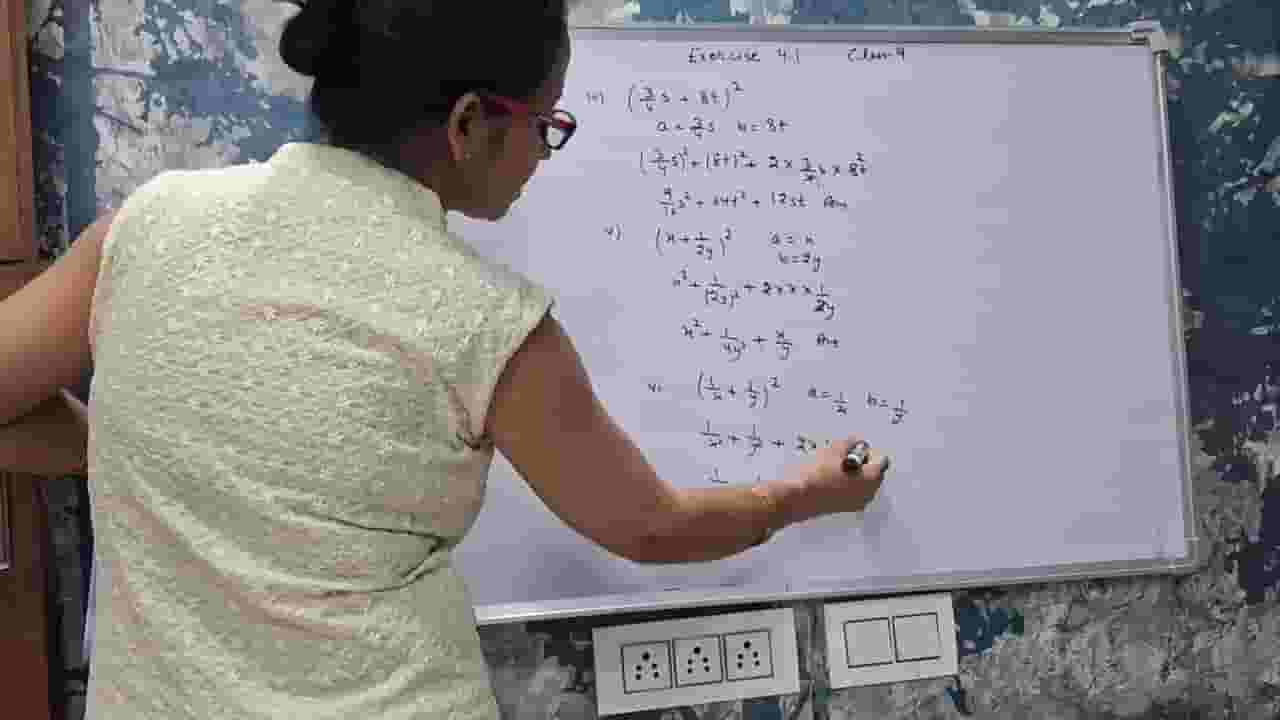 Exercise 4.1 Class 9
iv) (3/4 s + 8t)²
a = 3/4 s b = 8t
(3/4 s)² + (8t)² + 2 × 3/4 s × 8t
9/16 s² + 64t² + 12st Ans
v) (x + 1/2y)² a = x
b = 2y
x² + 1/(2y)² + 2 × x × 1/2y
x² + 1/4y² + x/y Ans
(1/x + 1/y)² a = 1/x b = 1/y
1/x² + 1/y² + 2 ×
1